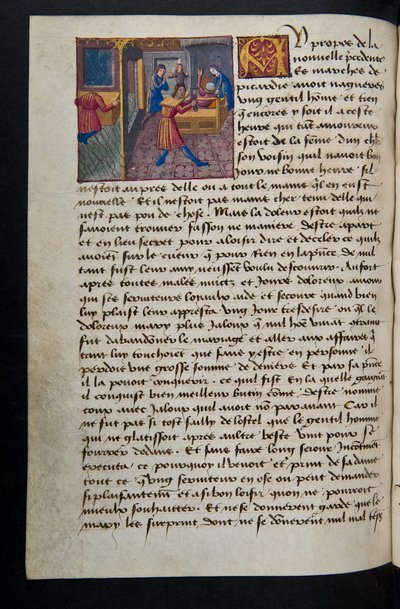 A propos de la
nouuelle precedente
Es marches de
picardie auoit nagueres
vng gentil home et tien
q encores y soit il a ceste
heure qui tant amoureux
estoit de la feme dun chlr
son voisin quil nauoit bon
Jour ne bonne heure sil
nestoit aupres delle ou a tout le mains ql en eust
nouuelle Et il nestoit pas mains cher tenu delle qui
nest pas peu de chose. Mais la doleur estoit quilz ne
sauoient trouuer fasson ne maniere destre apart
et en lieu secret pour a loisir dire et decler ce quilz
auoiet sur le cueur q pour rien en la pnce de nul
tant fust leur amy neussent voulu descouurir. Au fort
apres toutes males nuitz et Jours doloreux amours
qui ses seruiteurs loyaulx aide et secoure quand bien
luy plaist leur appresta vng Jour tresdesire ou ql le
doloreux mary plus Jaloux q nul hoe viuat
fut dabandoner le mariage et aller aux affaires q
tant luy touchoiet que sans y estre en personne il
perdoit vne grosse somme de deniers Et par sa pnce
il la pouoit conquerir. ce quil fist En la quelle gaignant
il conquist bien meilleur butin come destre nomme
coux auec Jaloux quil auoit no parauant Car il
ne fut pas si tost sailly de lostel que le gentil homme
qui ne glatissoit apres aultre beste vint pour se
fourrer dedans. Et sans faire long seiour Incotinet
executa ce pourquoy il venoit et print de sa dame
tout ce q vng seruiteur en ose ou peut demander
si plaisantemet et a si bon loisir quon ne pourroit
mieulx souhaitter. Et ne se donneret garde que le
mary les surprint dont ne se donneret nul mal teps